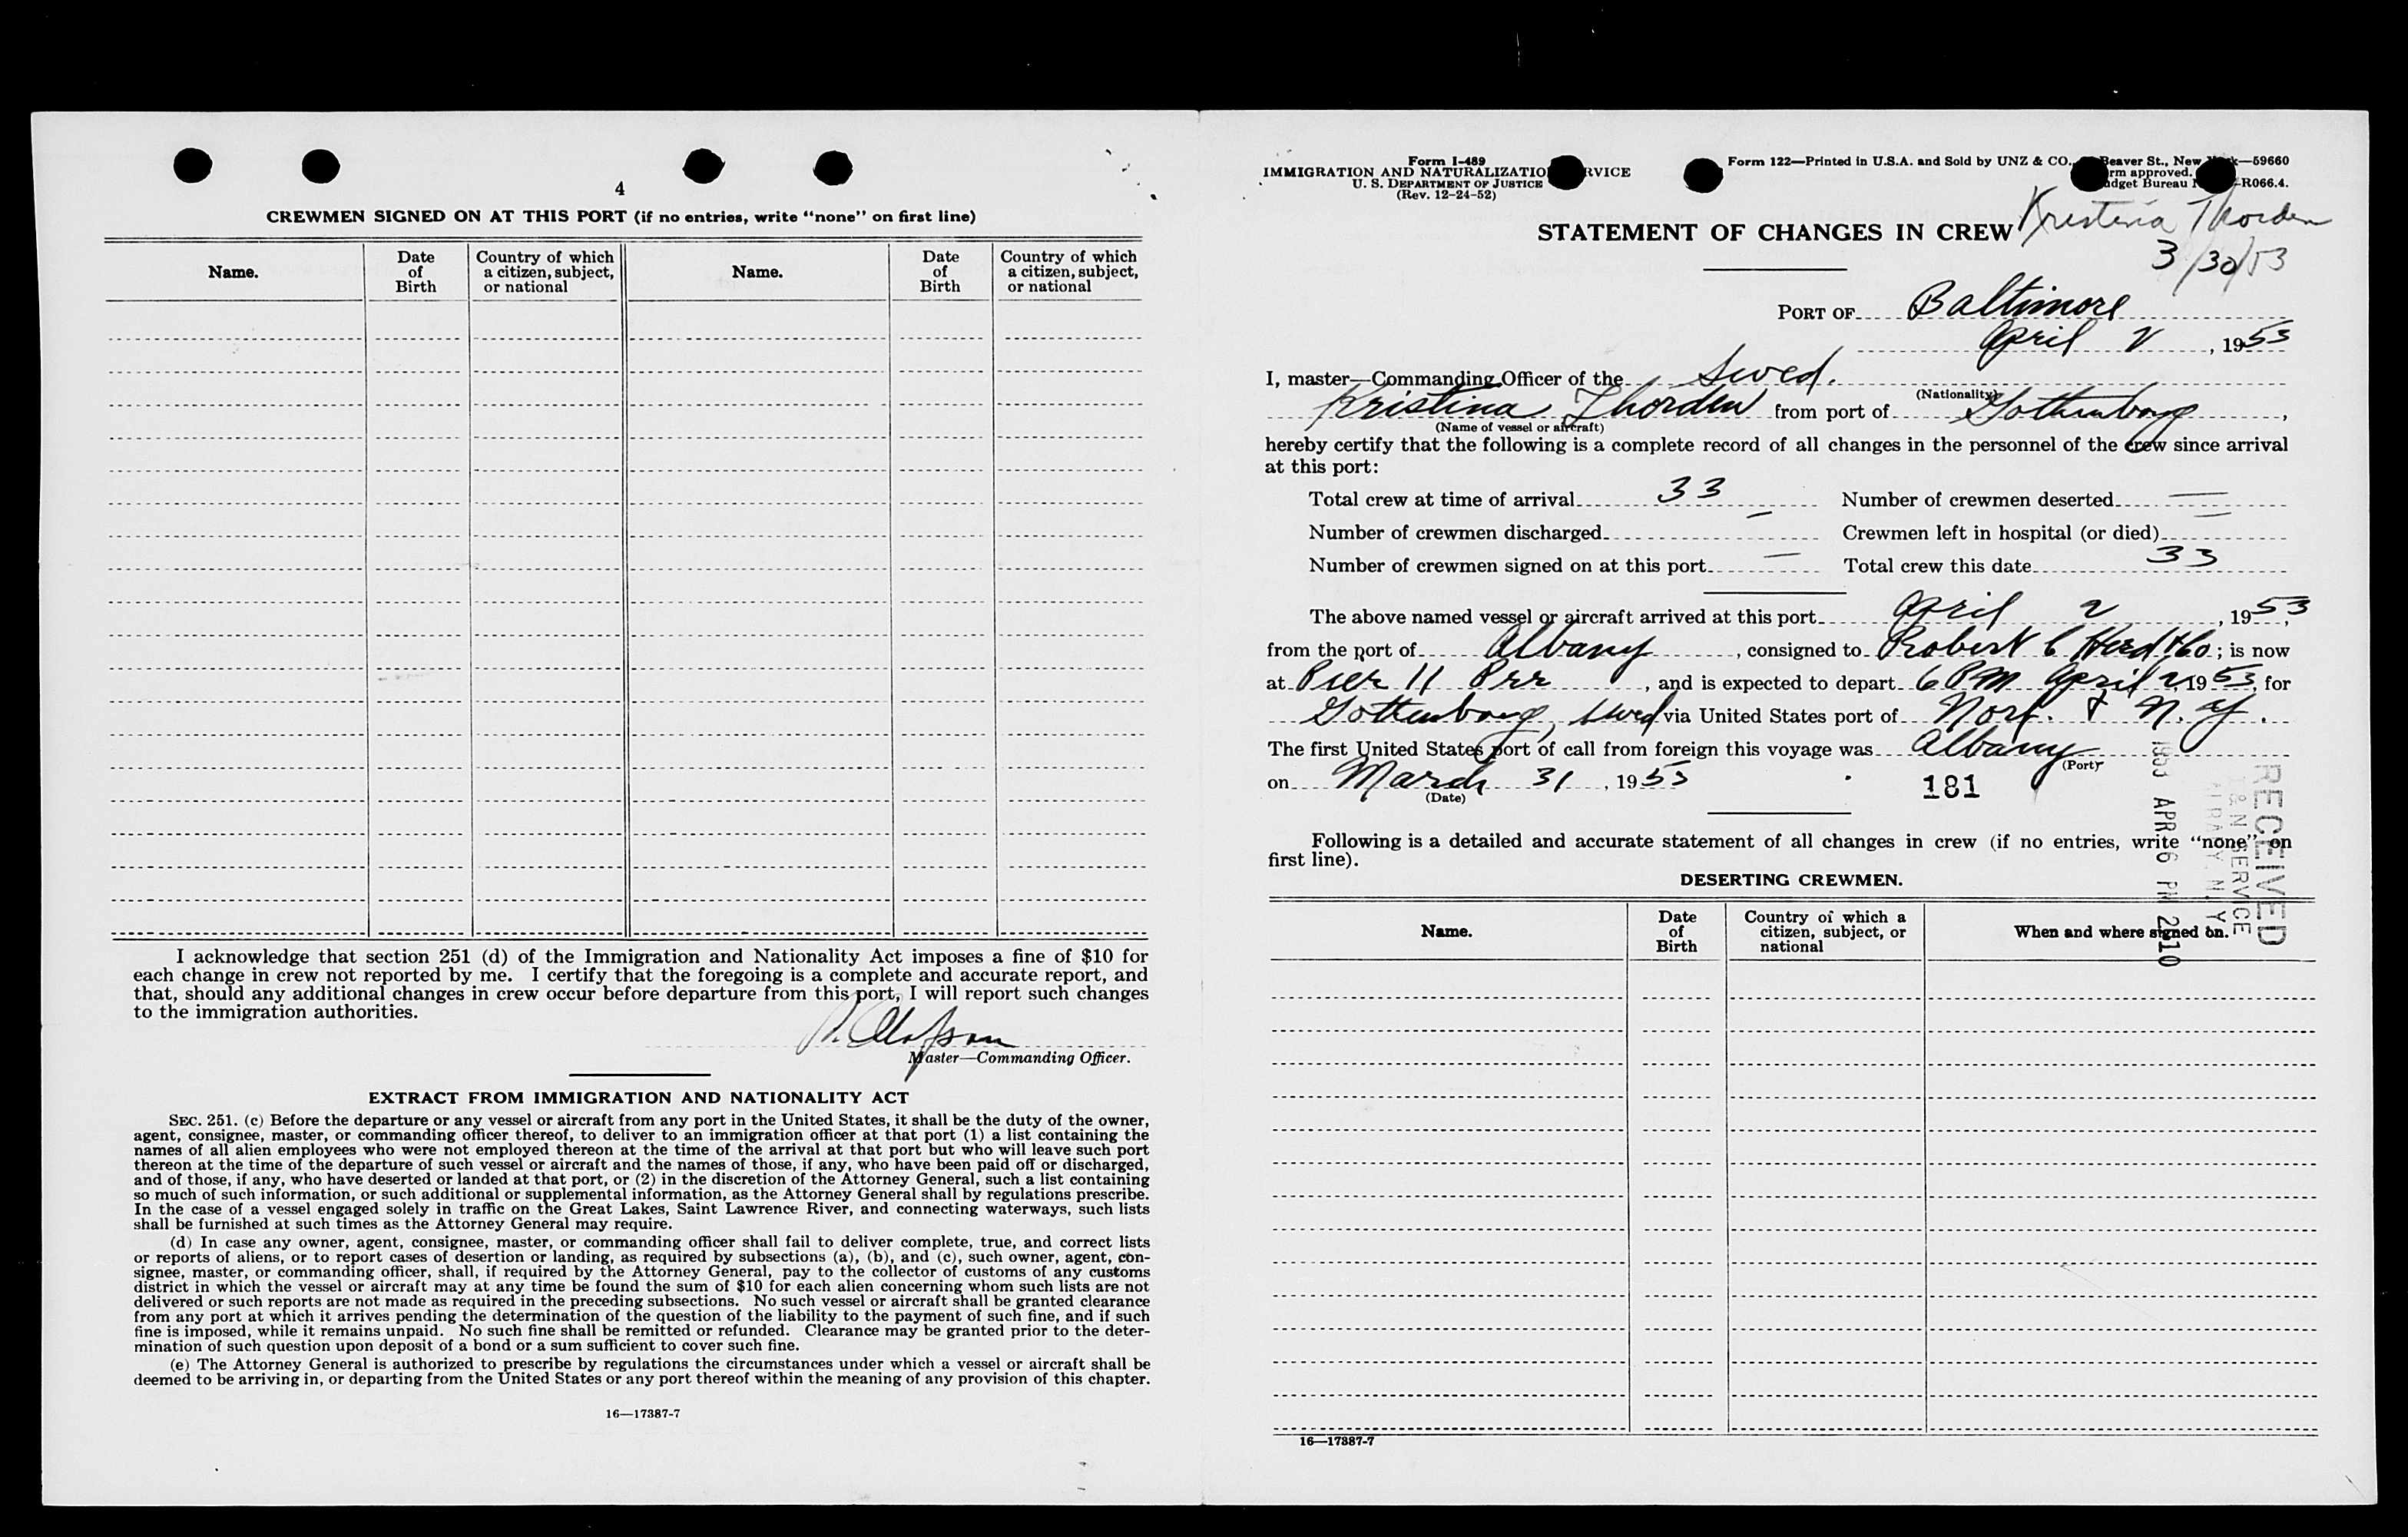 4
CREWMEN SIGNED ON AT THIS PORT (if no entries, write “none” on first line)
Name. Date of Birth Country of which a citizen, subject, or national Name. Date of Birth Country of which a citizen, subject, or national
I acknowledge that section 251 (d) of the Immigration and Nationality Act imposes a fine of $10 for
each change in crew not reported by me. I certify that the foregoing is a complete and accurate report, and
that, should any additional changes in crew occur before departure from this port, I will report such changes
to the immigration authorities.
Olofson
Master—Commanding Officer.
EXTRACT FROM IMMIGRATION AND NATIONALITY ACT
SEC. 251. (c) Before the departure or any vessel or aircraft from any port in the United States, it shall be the duty of the owner,
agent, consignee, master, or commanding officer thereof, to deliver to an immigration officer at that port (1) a list containing the
names of all alien employees who were not employed thereon at the time of the arrival at that port but who will leave such port
thereon at the time of the departure of such vessel or aircraft and the names of those, if any, who have been paid off or discharged,
and of those, if any, who have deserted or landed at that port, or (2) in the discretion of the Attorney General, such a list containing
so much of such information, or such additional or supplemental information, as the Attorney General shall by regulations prescribe.
In the case of a vessel engaged solely in traffic on the Great Lakes, Saint Lawrence River, and connecting waterways, such lists
shall be furnished at such times as the Attorney General may require.
(d) In case any owner, agent, consignee, master, or commanding officer shall fail to deliver complete, true, and correct lists
or reports of aliens, or to report cases of desertion or landing, as required by subsections (a), (b), and (c), such owner, agent, con-
signee, master, or commanding officer, shall, if required by the Attorney General, pay to the collector of customs of any customs
district in which the vessel or aircraft may at any time be found the sum of $10 for each alien concerning whom such lists are not
delivered or such reports are not made as required in the preceding subsections. No such vessel or aircraft shall be granted clearance
from any port at which it arrives pending the determination of the question of the liability to the payment of such fine, and if such
fine is imposed, while it remains unpaid. No such fine shall be remitted or refunded. Clearance may be granted prior to the deter-
mination of such question upon deposit of a bond or a sum sufficient to cover such fine.
(e) The Attorney General is authorized to prescribe by regulations the circumstances under which a vessel or aircraft shall be
deemed to be arriving in, or departing from the United States or any port thereof within the meaning of any provision of this chapter.
16—17387-7
Form I-489
IMMIGRATION AND NATURALIZATIO RVICE
U. S. DEPARTMENT OF JUSTICE
(Rev. 12-24-52)
Form 122—Printed in U.S.A. and Sold by UNZ & CO., Beaver St., New k—59660
rm approved.
dget Bureau -R066.4.
Kristina Thorden
3/30/53
STATEMENT OF CHANGES IN CREW
PORT OF Baltimore
April 2, 1953
I, master—Commanding Officer of the Swed.
(Nationality)
Kristina Thorden from port of Gothenborg,
(Name of vessel or aircraft)
hereby certify that the following is a complete record of all changes in the personnel of the crew since arrival
at this port:
Total crew at time of arrival 33 Number of crewmen deserted —
Number of crewmen discharged — Crewmen left in hospital (or died) —
Number of crewmen signed on at this port — Total crew this date 33
The above named vessel or aircraft arrived at this port April 2, 1953,
from the port of Albany, consigned to Robert C Herd & Co; is now
at Pier 11 Prr, and is expected to depart 6 PM April 2, 1953, for
Gothenborg, Swed via United States port of Norf. & N.Y.
The first United States port of call from foreign this voyage was Albany
(Port)
on March 31, 1953
(Date)
181
RECEIVED
I & N SERVICE
ALBANY N.Y.
1953 APR 6 PM 2 10
Following is a detailed and accurate statement of all changes in crew (if no entries, write “none” on
first line).
DESERTING CREWMEN.
Name. Date of Birth Country of which a citizen, subject, or national When and where signed on.
16—17387-7